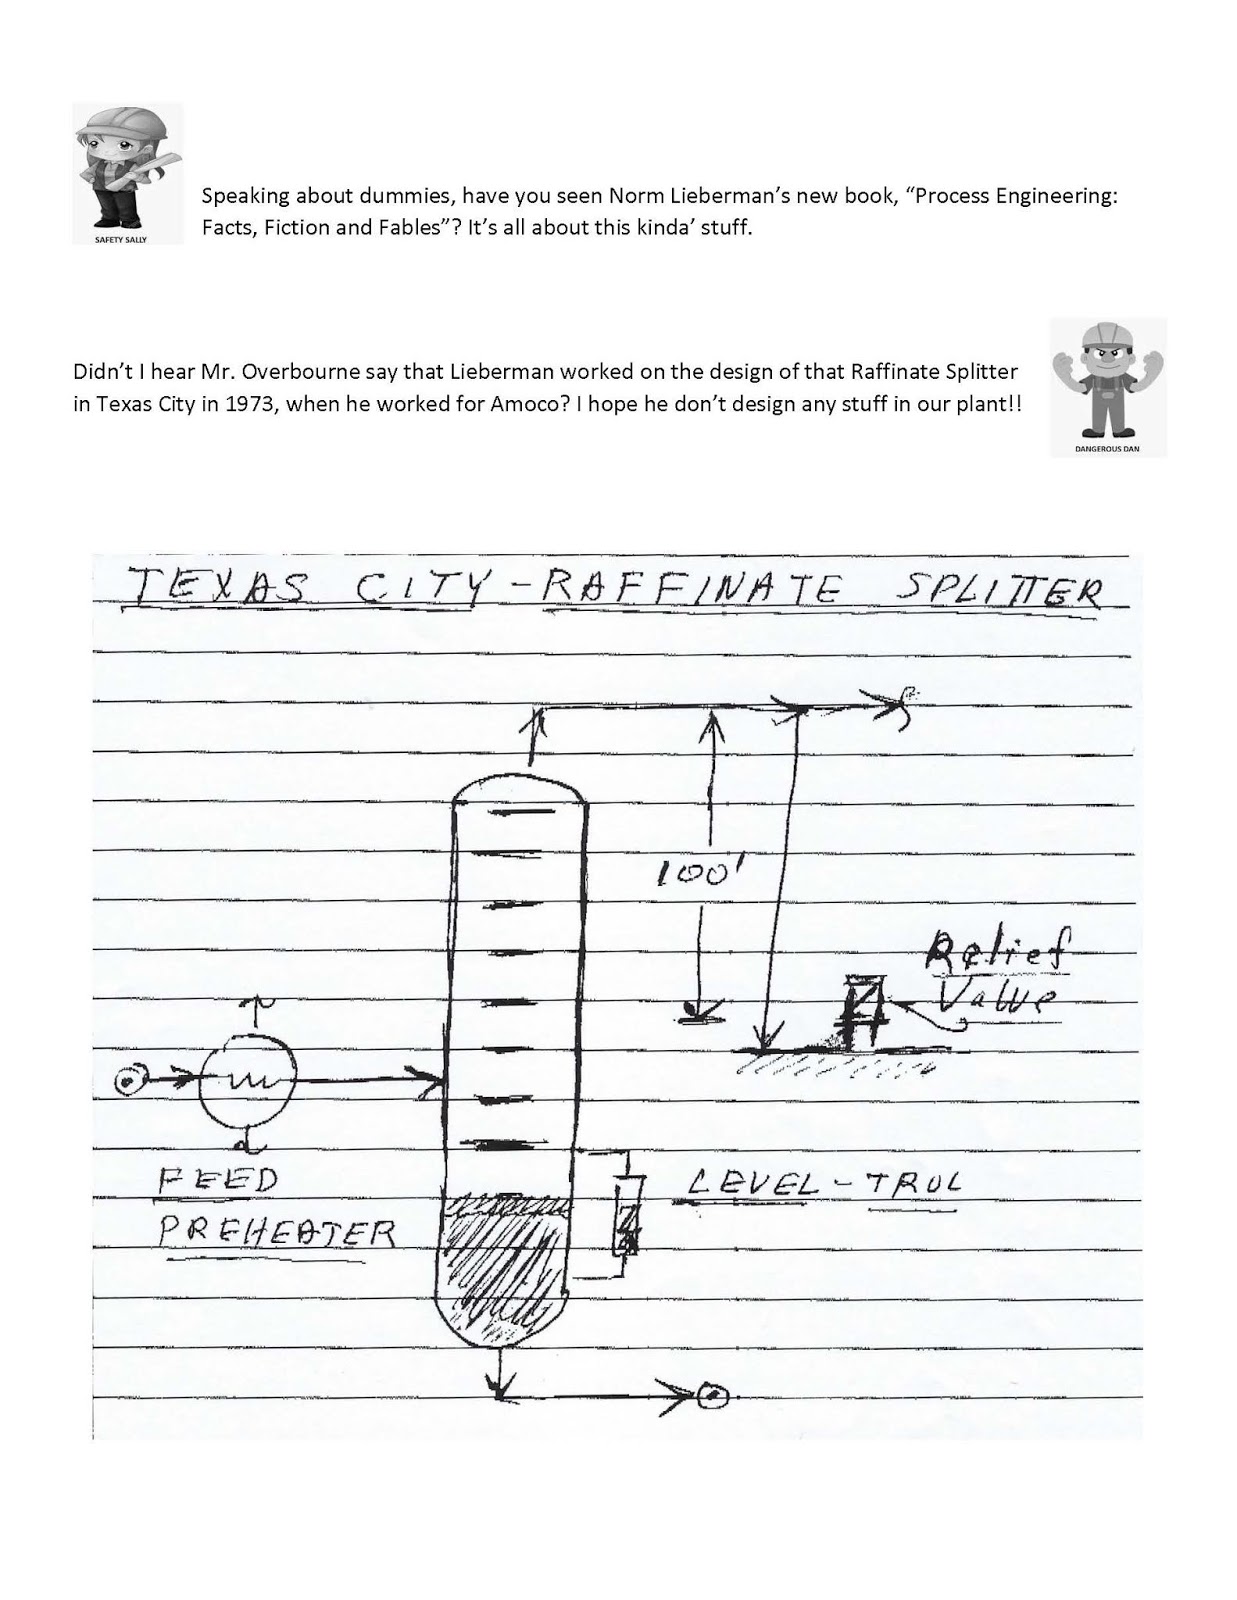 SAFETY SALLY
Speaking about dummies, have you seen Norm Lieberman’s new book, “Process Engineering:
Facts, Fiction and Fables”? It’s all about this kinda’ stuff.
Didn’t I hear Mr. Overbourne say that Lieberman worked on the design of that Raffinate Splitter
in Texas City in 1973, when he worked for Amoco? I hope he don’t design any stuff in our plant!!
DANGEROUS DAN
TEXAS CITY - RAFFINATE SPLITTER
100'
Relief
Valve
FEED
PREHEATER
LEVEL - TROL